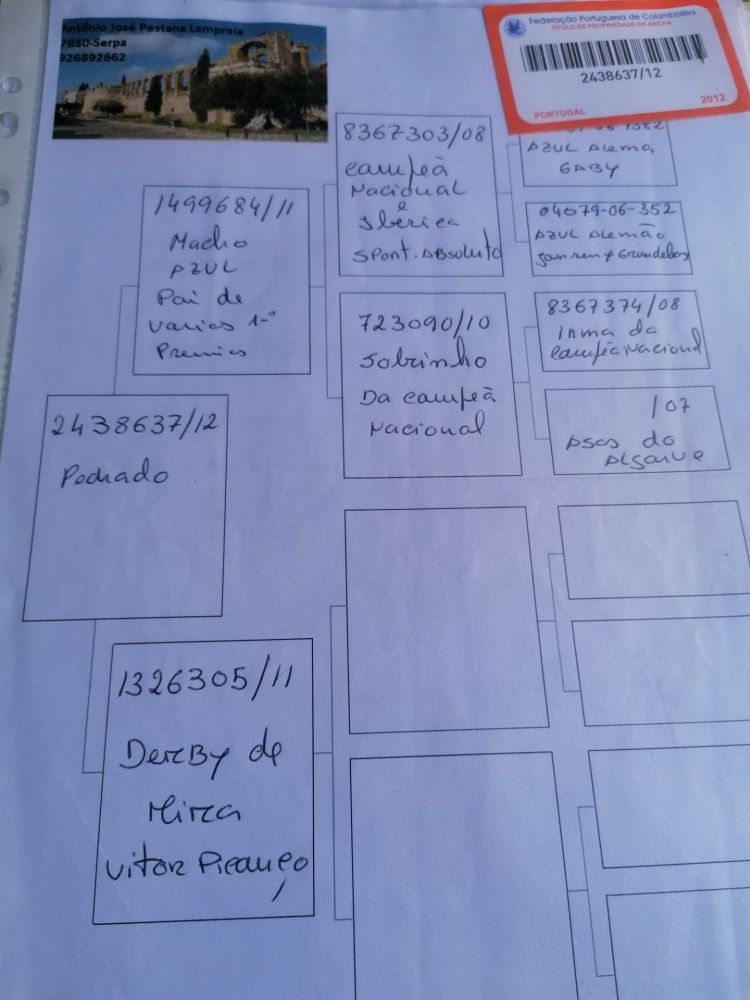 António José Pestana Lampreia
7830-Serpa
926892662
Federação Portuguesa de Columbofilia
TÍTULO DE PROPRIEDADE DA ANILHA
2438637/12
PORTUGAL
2012
2438637/12
Pedrado
1499684/11
Macho
AZUL
Pai de
varios 1º
Premios
1326305/11
DERBY de
Mira
Vitor Picanço
8367303/08
campeã
Nacional
e
Iberica
SPont. Absoluto
723090/10
Sobrinho
Da campeã
Nacional
AZUL Alema
GABY
04079-06-352
AZUL Alemão
8367374/08
Irma da
campeã Nacional
/07
Asas do
Algarve